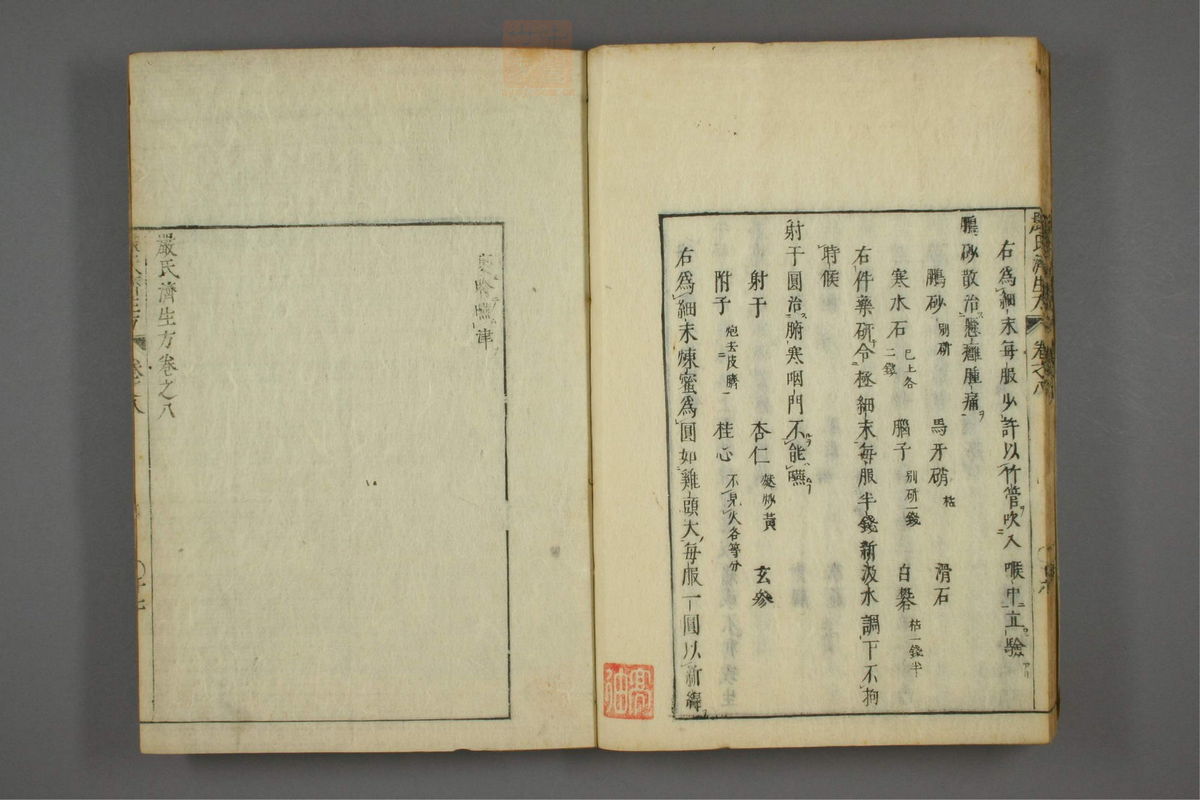 嚴氏濟生方 卷之八
右爲細末每服少許以竹管吹入喉中立驗
鵬砂散治懸癰腫痛
鵬砂 別研 馬牙硝 枯 滑石
寒水石 已上各二錢 腦子 別研一錢 白礬 枯一錢半
右件藥研令極細末每服半錢新汲水調下不拘
時候
射干圓治腑寒咽門不能嚥
射干 杏仁 麩炒黃 玄參
附子 炮去皮臍 桂心 不見火各等分
右爲細末煉蜜爲圓如雞頭大每服一圓以新綿
裹含嚥津
嚴氏濟生方卷之八